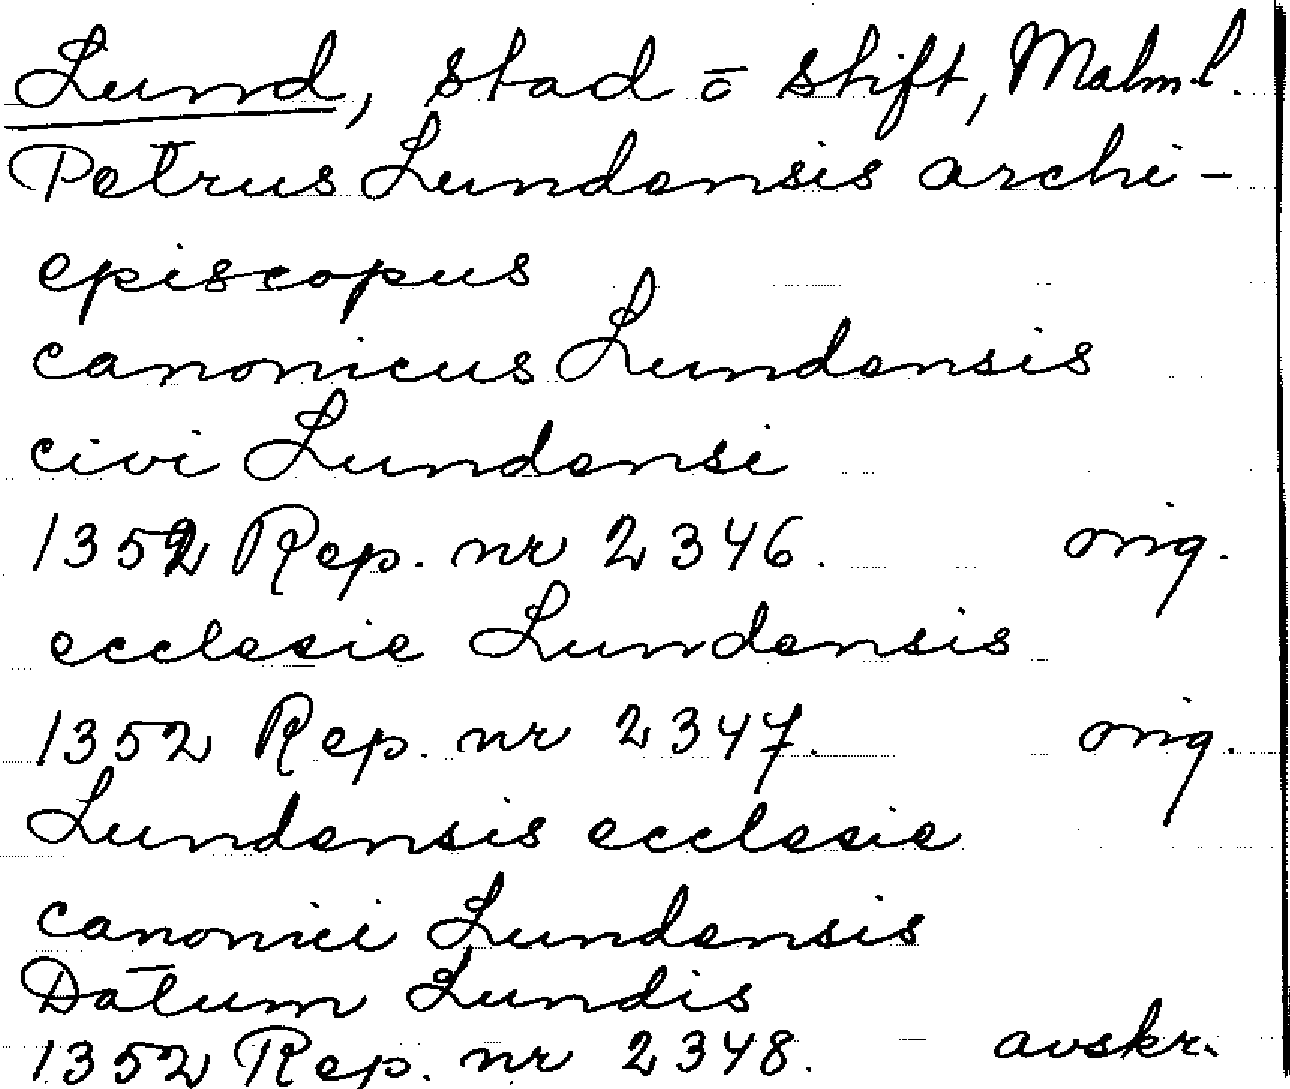 Lund, stad o stift, Malm.l.
Petrus Lundensis archi-
episcopus
canonicus Lundensis
civi Lundensi
1352 Rep. nr 2346. orig.
ecclesie Lundensis
1352 Rep. nr 2347. orig.
Lundensis ecclesie
canonici Lundensis
Datum Lundis
1352 Rep. nr 2348. avskr.